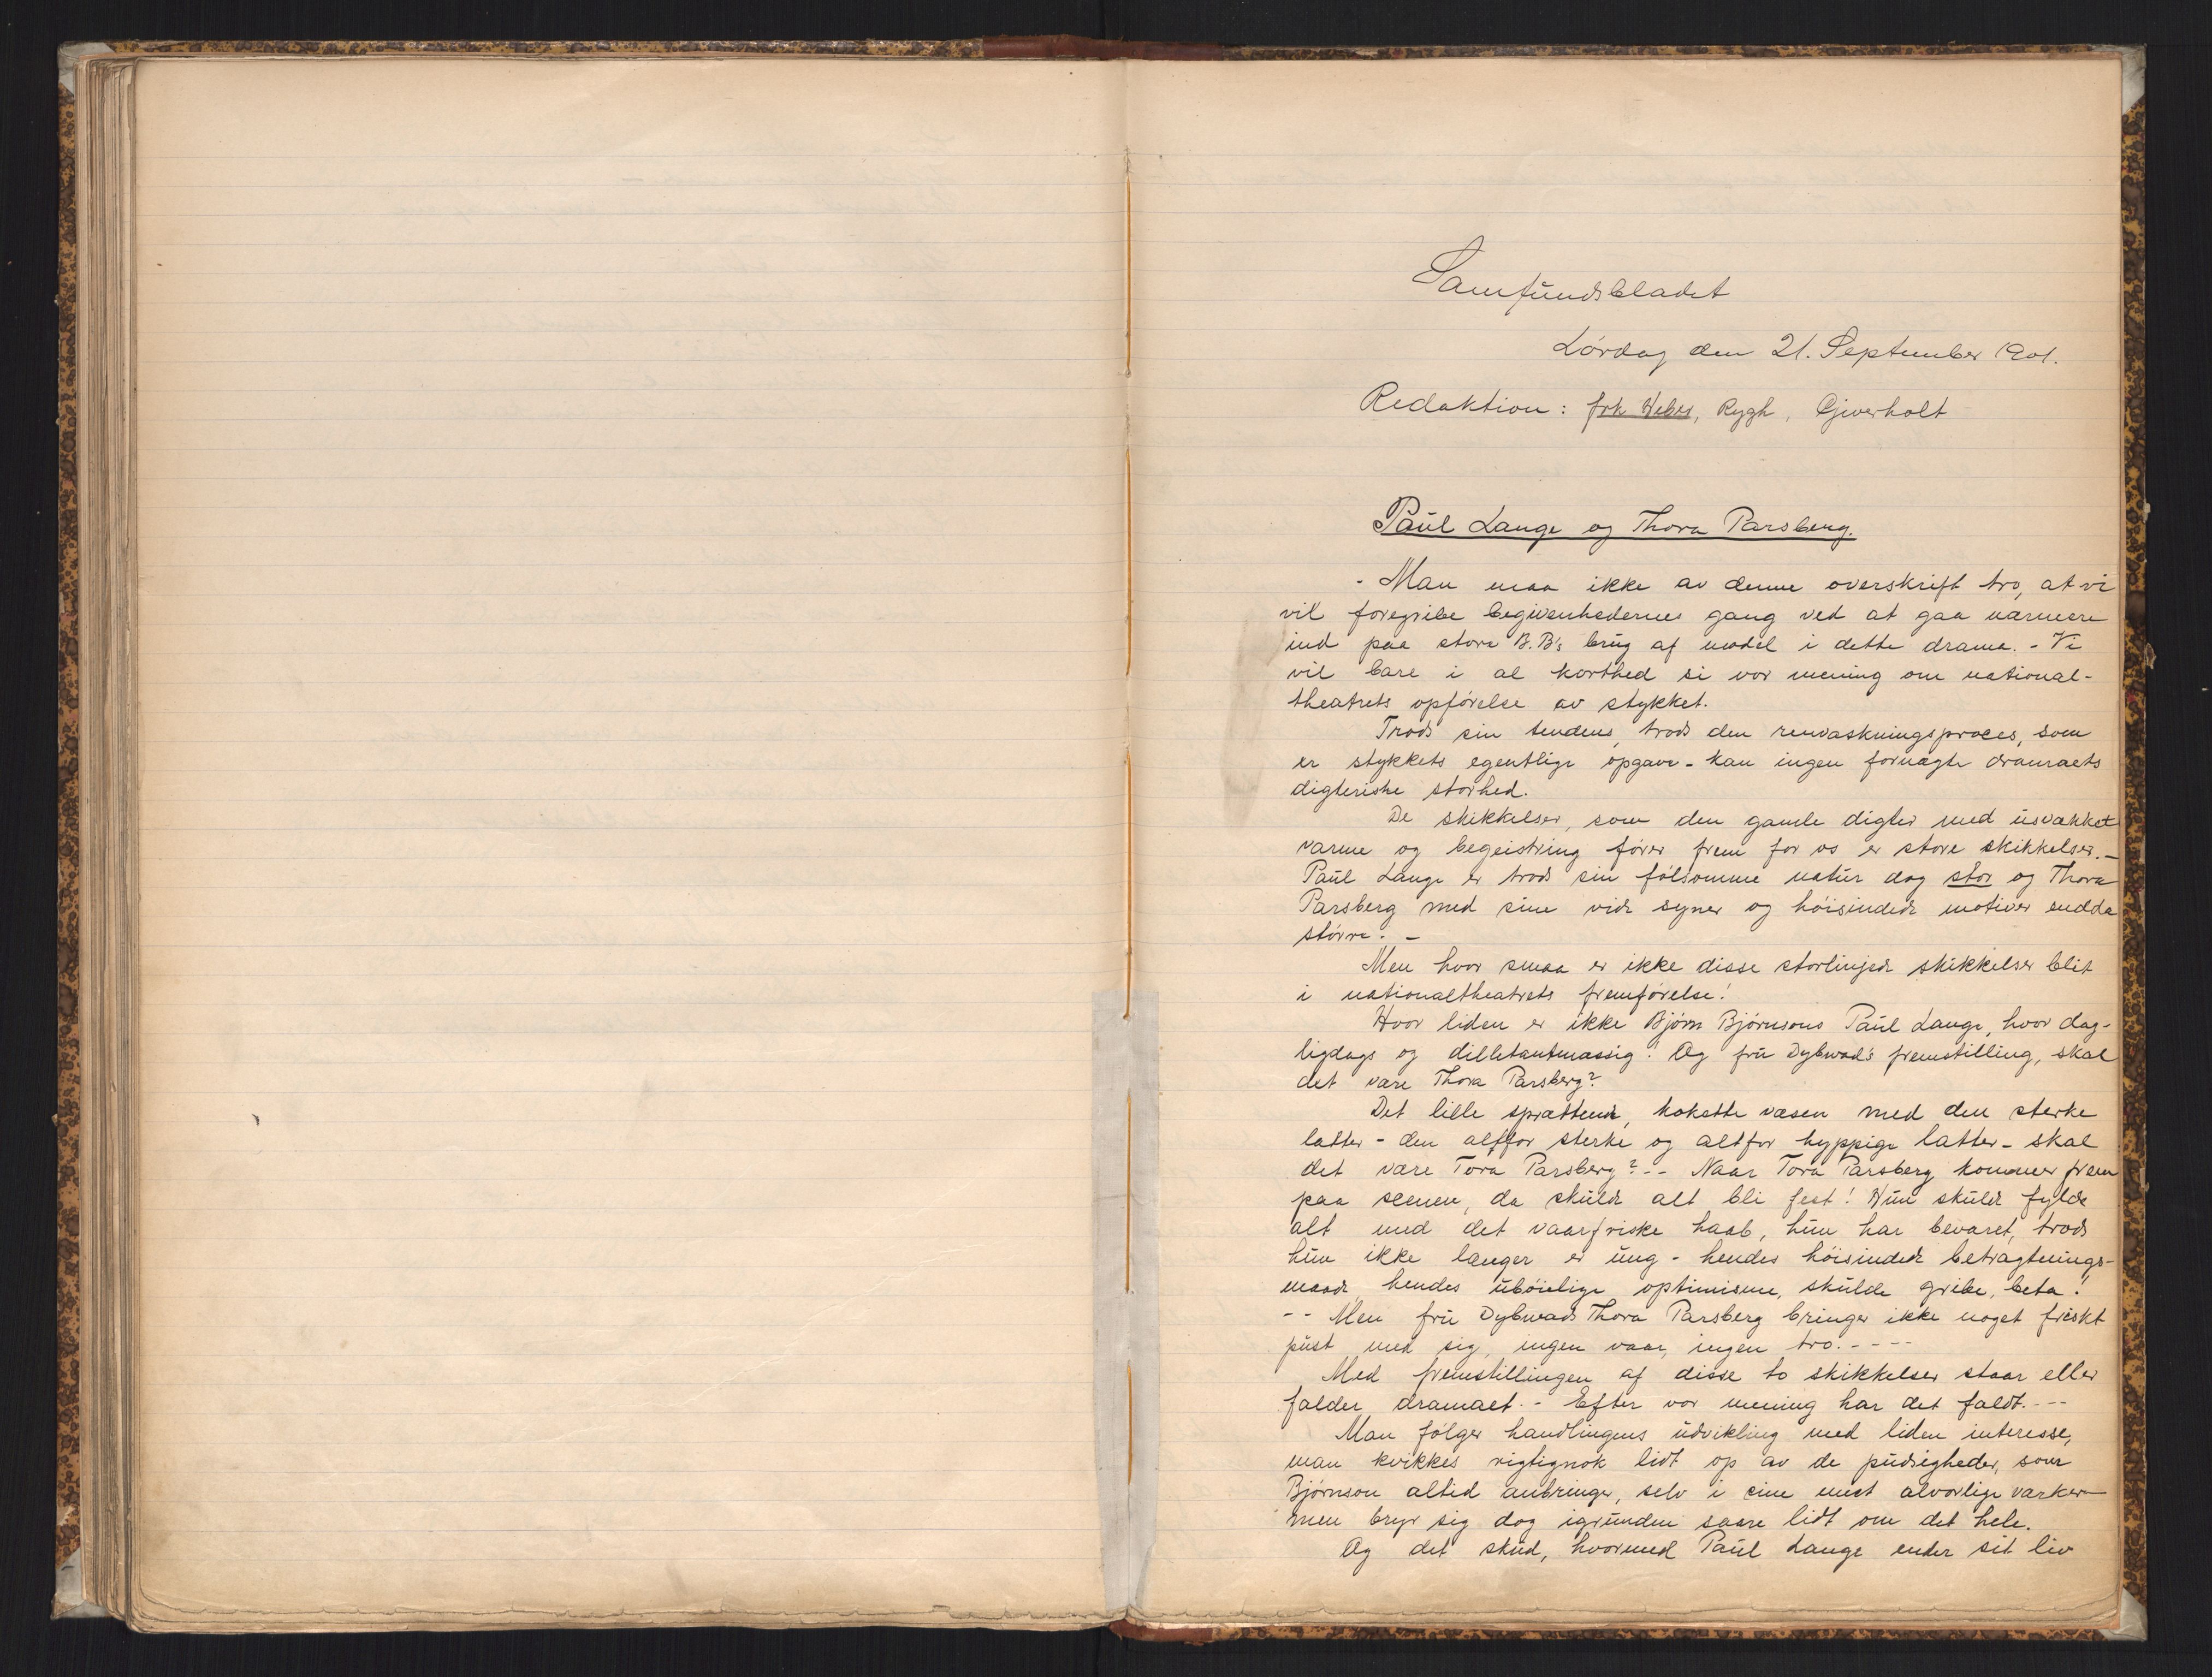 Samfundsbladet
Lørdag den 21. September 1901.
Redaktion: frk Weber, Rygh, Gjwerholt
Paul Lange og Thora Parsberg.
- Man maa ikke av denne overskrift tro, at vi
vil foregribe begivenhedernes gang ved at gaa nærmere
ind paa store B.B's brug af model i dette drama. - Vi
vil bare i al korthed si vor mening om national-
theatrets opførelse av stykket.
Trods sin tendens, trods den renvaskningsproces, som
er stykkets egentlige opgave - kan ingen fornægte dramaets
digteriske storhed.
De skikkelser, som den gamle digter med usvækket
varme og begeistring fører frem for os er store skikkelser. -
Paul Lange er trods sin følsomme natur dog stor og Thora
Parsberg med sine vide syner og høisindede motiver endda
større. -
Men hvor smaa er ikke disse storlinjede skikkelser blit
i nationaltheatrets fremførelse!
Hvor liden er ikke Bjørn Bjørnsons Paul Lange, hvor dag-
ligdags og dilletantmæssig! Og fru Dybwad's fremstilling, skal
det være Thora Parsberg?
Det lille sprættende, kokette væsen med den sterke
latter - den altfor sterke og altfor hyppige latter - skal
det være Tora Parsberg? - - Naar Tora Parsberg kommer frem
paa scenen, da skulde alt bli fest! Hun skulde fylde
alt med det vaarfriske haab, hun har bevaret, trods
hun ikke længer er ung - hendes høisindede betragtnings-
maade, hendes ubøielige optimisme, skulde gribe, beta!
- - Men fru Dybwads Thora Parsberg bringer ikke noget friskt
pust med sig, ingen vaar, ingen tro. - - - -
Med fremstillingen af disse to skikkelser staar eller
falder dramaet. - Efter vor mening har det faldt. - - -
Man følger handlingens udvikling med liden interesse,
man kvikkes rigtignok lidt op av de pudsigheder, som
Bjørnson altid anbringer, selv i sine mest alvorlige værker -
men bryr sig dog igrunden saare lidt om det hele.
Og det skud, hvormed Paul Lange ender sit liv